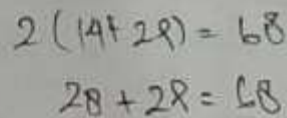 2 (14+ 2l) = 68
28 + 2l = 68